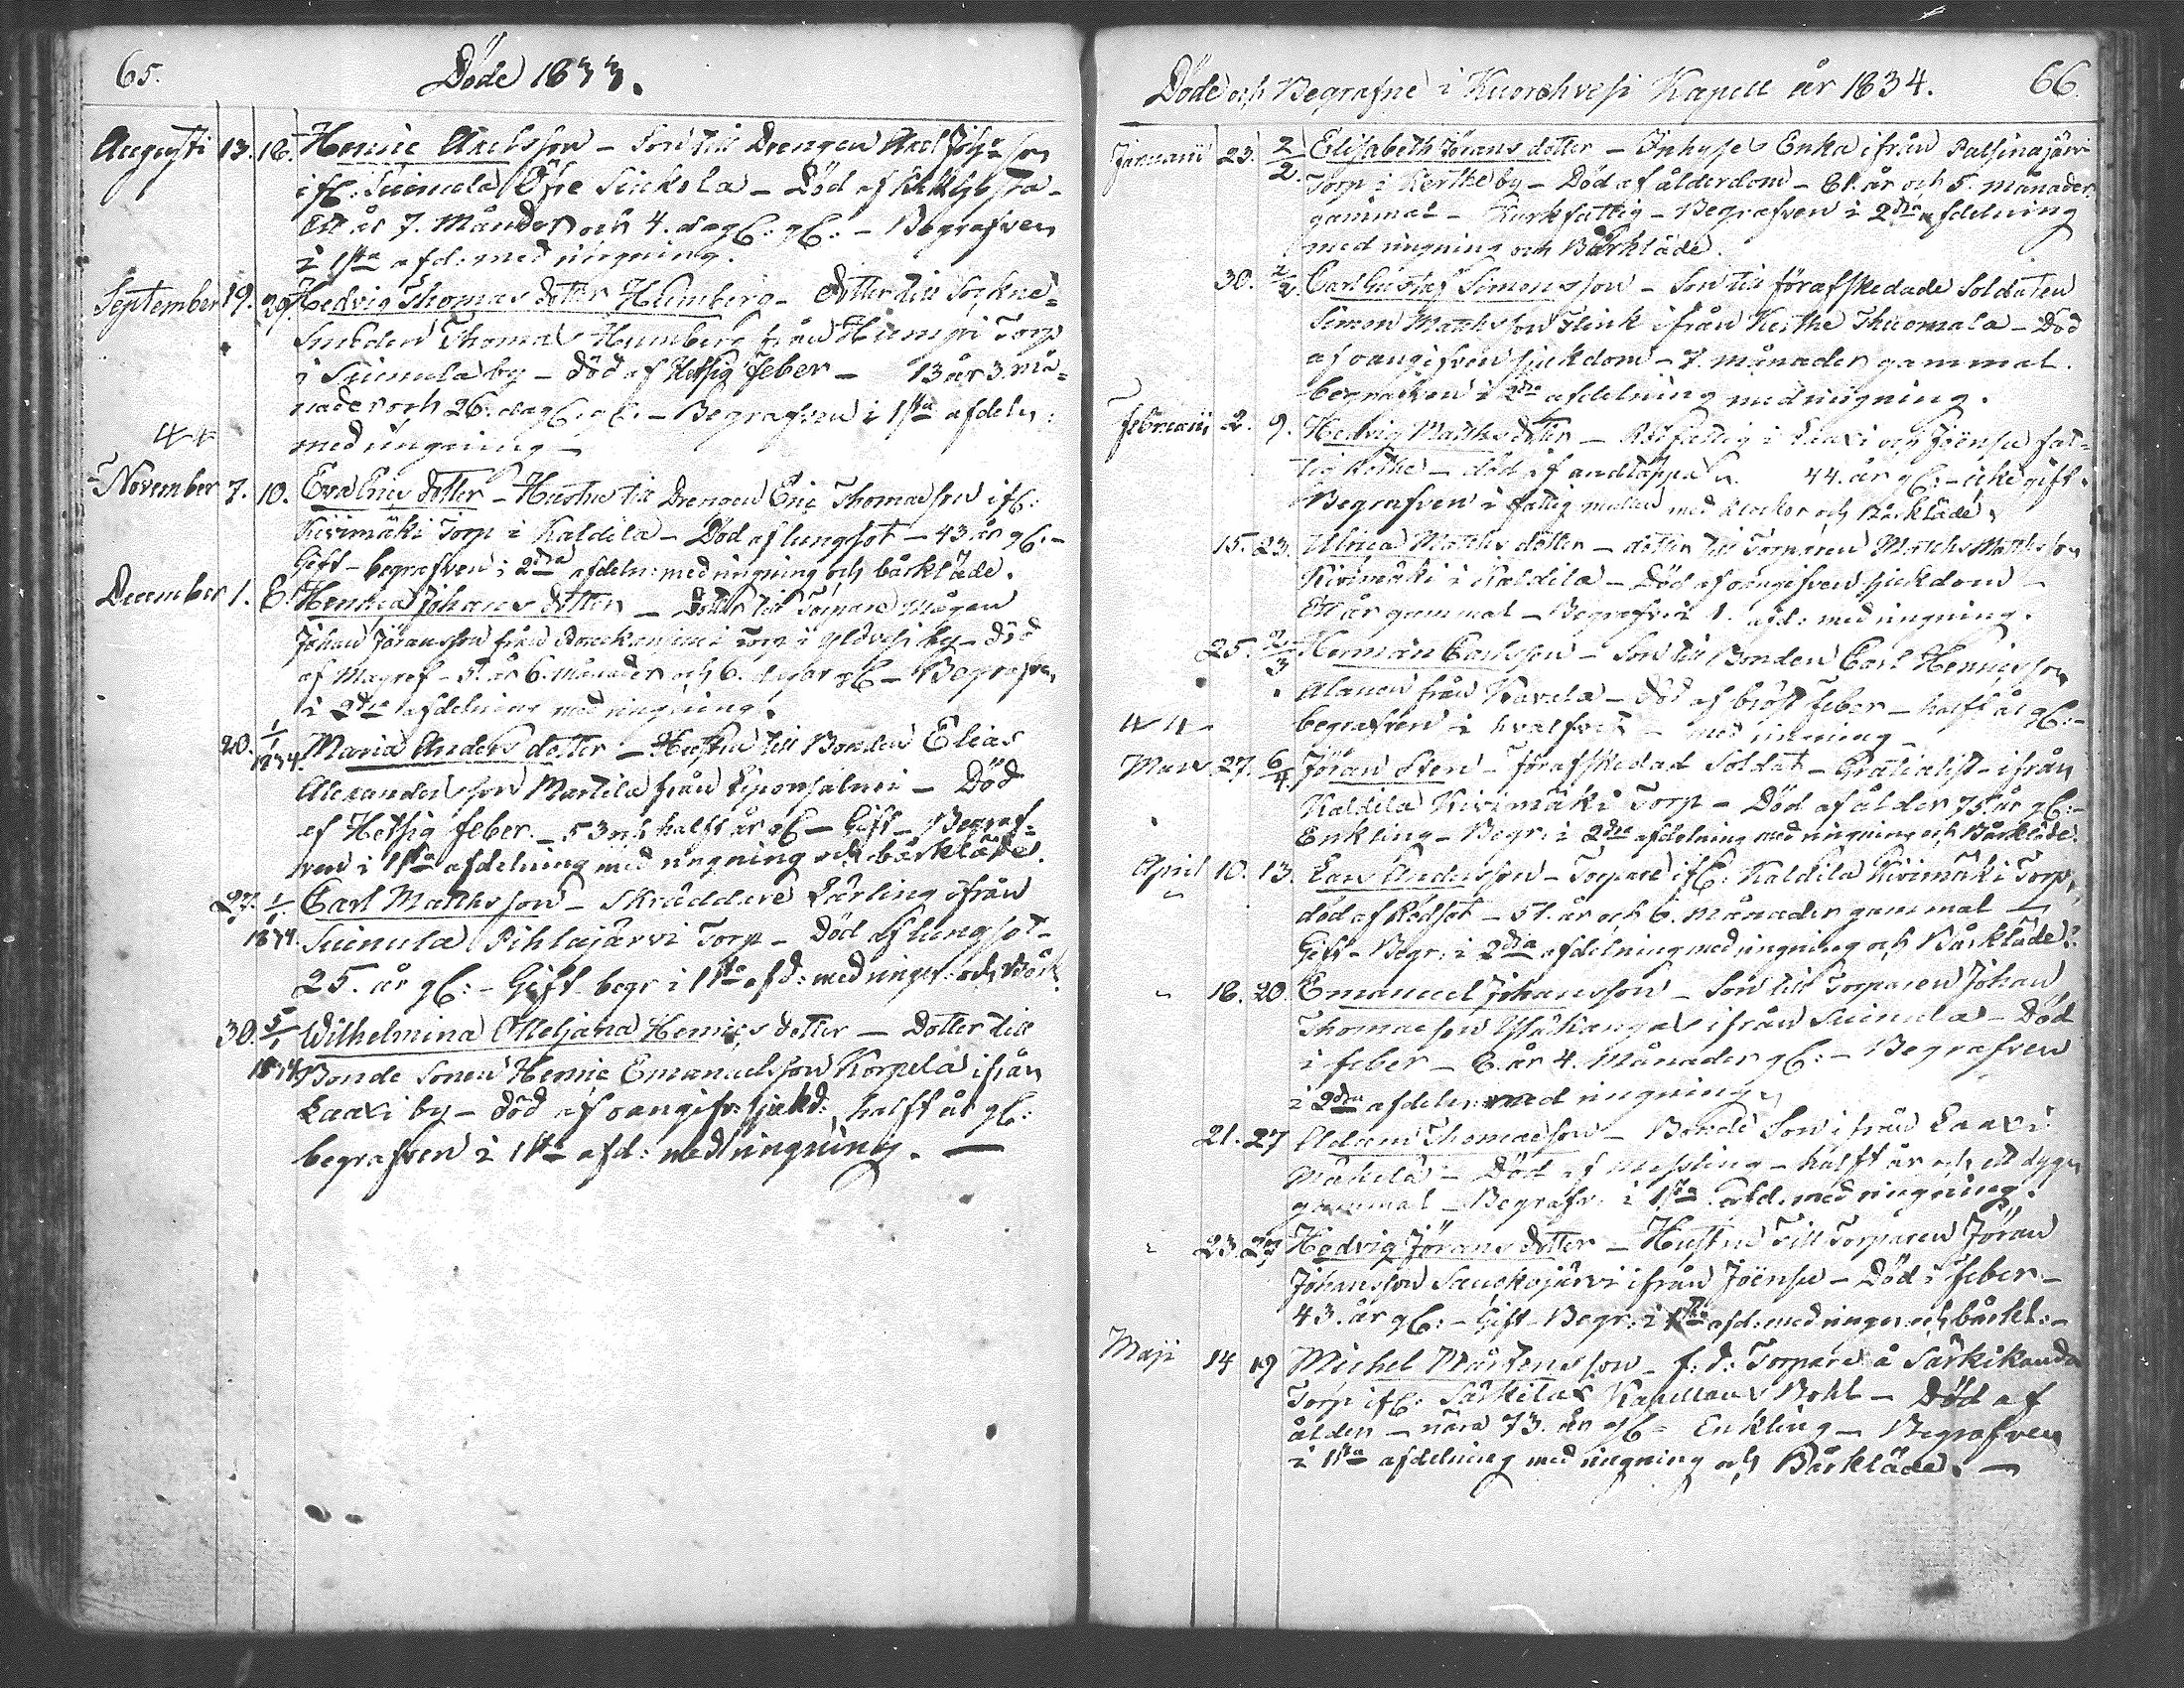 65.
Döde 1833.
Augusti 13. 16. Henric Axelsson – Son till Drengen Axel Joh:son
if: Suinula Öfre Siukola – Död af Kikhosta –
Ett år 7. Månader och 4. dag: gl: – Begrafven
i 1sta afd: med ringning.
September 19. 29. Hedvig Thomas dotter Humberg – dotter till Sockne=
Smeden Thomas Humberg från Torp
i Suinula by – död af Hetsig feber – 13 år 3. må=
nader och 26. dag: gl: – Begrafven i 1sta afdeln:
med ringning –
November 7. 10. Eva Erics dotter – Hustru till Drengen Eric Thomasson if:
Kivimäki Torp i Kaldila – Död af lungsot – 43 år gl: –
Gift – begrafven i 2dra afdeln: med ringning och bårkläde.
December 1. 8. Henrica Johans dotter – Dotter till Torpare Mågen
Johan Jöransson från Torp i by – död
af Magref – 5. år 6. månader och 6. dagar gl – Begrafven
i 2dra afdelning med ringning.
20. 1/1 1834. Maria Anders dotter – Hustru till Bonden Elias
Alexandersson Martila från Liponsalmi – Död
af Hetsig feber. – 53 och halft år gl – Gift – Begraf=
ven i 1sta afdelning med ringning och bårkläde.
27. 1/1 1834. Carl Mathsson – Skräddare Lärling ifrån
Suinula Pihlajärvi Torp – Död af lungsot –
25. år gl: – Gift begr i 1sta afd: med ringn: och Bårk:
30. 5/1 1834 Wilhelmina Ottiljana Henrics dotter – Dotter till
Bonde Sonen Henric Emanuelsson Korpela ifrån
Laaxi by – död af oangifv: sjukd: halft år gl:
begrafven i 1sta afd: med ringning. —
Döde och Begrafne i Kuorehvesi Kapell år 1834. 66.
Januarii 23. 2/2. Elisabeth Jörans dotter – Inhyses Enka ifrån Palsinajärvi
Torp i Kertte by – Död af ålderdom – 61. år och 5. månader
gammal – Kurkfattig – Begrafven i 2dra afdelning
med ringning och Bårkläde.
30. 2/2. Carl Gustaf Simonsson – Son till förafskedade Soldaten
Simon Mathsson Flink ifrån Kerthe Thuomala – Död
af oangifven sjukdom – 7. månader gammal.
begrafven i 2dra afdelning med ringning.
Februarii 2. 9. Hedvig Mathsdotter – Rotfattig i Laaxi och Joënsu fat=
tig Rothe – död af andtäppa 44. år gl: – icke gift.
Begrafven i fattig mullen med klockor och Bårkläde.
15. 23. Ulrica Maths dotter – dotter till Torparen Maths Mathsson
Kivimäki i Kaldila – Död af oangifven sjukdom –
Ett år gammal – Begrafven i 1. afd: med ringning.
25. 2/3 Herman Carlsson – Son till Bonden Carl Henricsson
Alanen från Kavala – död af bröst feber – halft år gl: –
begrafven i hvalfvet – med ringning –
Mars 27. 6/4. Jöran Sten – förafskedad Soldat – Gratialist – ifrån
Kaldila Kivimäki Torp – Död af ålder 75. år gl: –
Enkling – Begr: i 2dra afdelning med ringning och Bårkläde.
April 10. 13. Lars Andersson – Torpare if: Kaldila Kivimäki Torp,
död af Rödsot – 51. år och 6. Månader gammal —
Gift – Begr: i 2dra afdelning med ringning och Bårkläde.
16. 20. Emanuel Johansson – Son till Torparen Johan
Thomasson ifrån Suinula – Död
i feber – 6. år 4. Månader gl: – Begrafven
i 2dra afdeln: med ringning
21. 27 Adam Thomasson – Bonde Son ifrån Laaxi
Mäkelä – Död af Messling – halft år och ett dygn
gammal – Begrafv: i 1sta afd: med ringning.
23. 27 Hedvig Jörans dotter – Hustru Till Torparen Jöran
Johansson Saukojärvi ifrån Joënsu – Död i feber –
43. år gl: – Gift – Begr: i 1sta afd: med ringn: och bårkl: –
Maji 14 19 Michel Mårtensson – f: d: Torpare å Särkikanda
Torp if: Särkilax Kapellans Bohl – Död af
ålder – nära 73. år gl = Enkling – Begrafven
i 1sta afdelning med ringning och Bårkläde. —